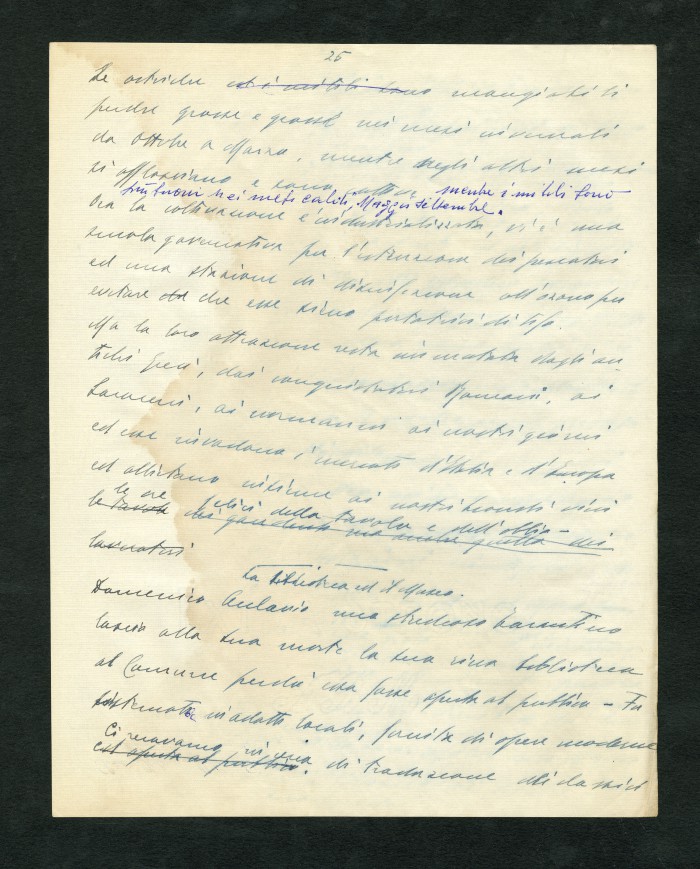 25
Le ostriche ed i mitili sono mangiabili
perché grosse e grasse nei mesi invernali
da Ottobre a Marzo, mentre negli altri mesi
si afflosciano e sono mentre i mitili sono
nei mesi caldi, Maggio Settembre.
Ora la coltivazione è industrializzata, vi è una
scuola governativa per l'istruzione dei pescatori
ed una stazione di disinfezione all'ozono per
evitare che esse siano portatrici di tifo.
Ma la loro attrazione resta immutata dagli an
tichi Greci, dai conquistatori Romani, ai
Saraceni, ai normanni ai nostri giorni
ed esse invadono i mercati d'Italia e d'Europa
ed allietano insieme ai nostri vini
le ore felici della tavola e dell'oblio
le tavole dei gaudenti ma anche quelle dei
lavoratori
La biblioteca ed il Museo.
Domenico Aclavio uno studioso tarantino
lasciò alla sua morte la sua ricca biblioteca
al Comune perché essa fosse aperta al pubblico – Fu
sistemata in adatti locali, fornita di opere moderne
Ci
ed aperta al pubblico. di traduzione